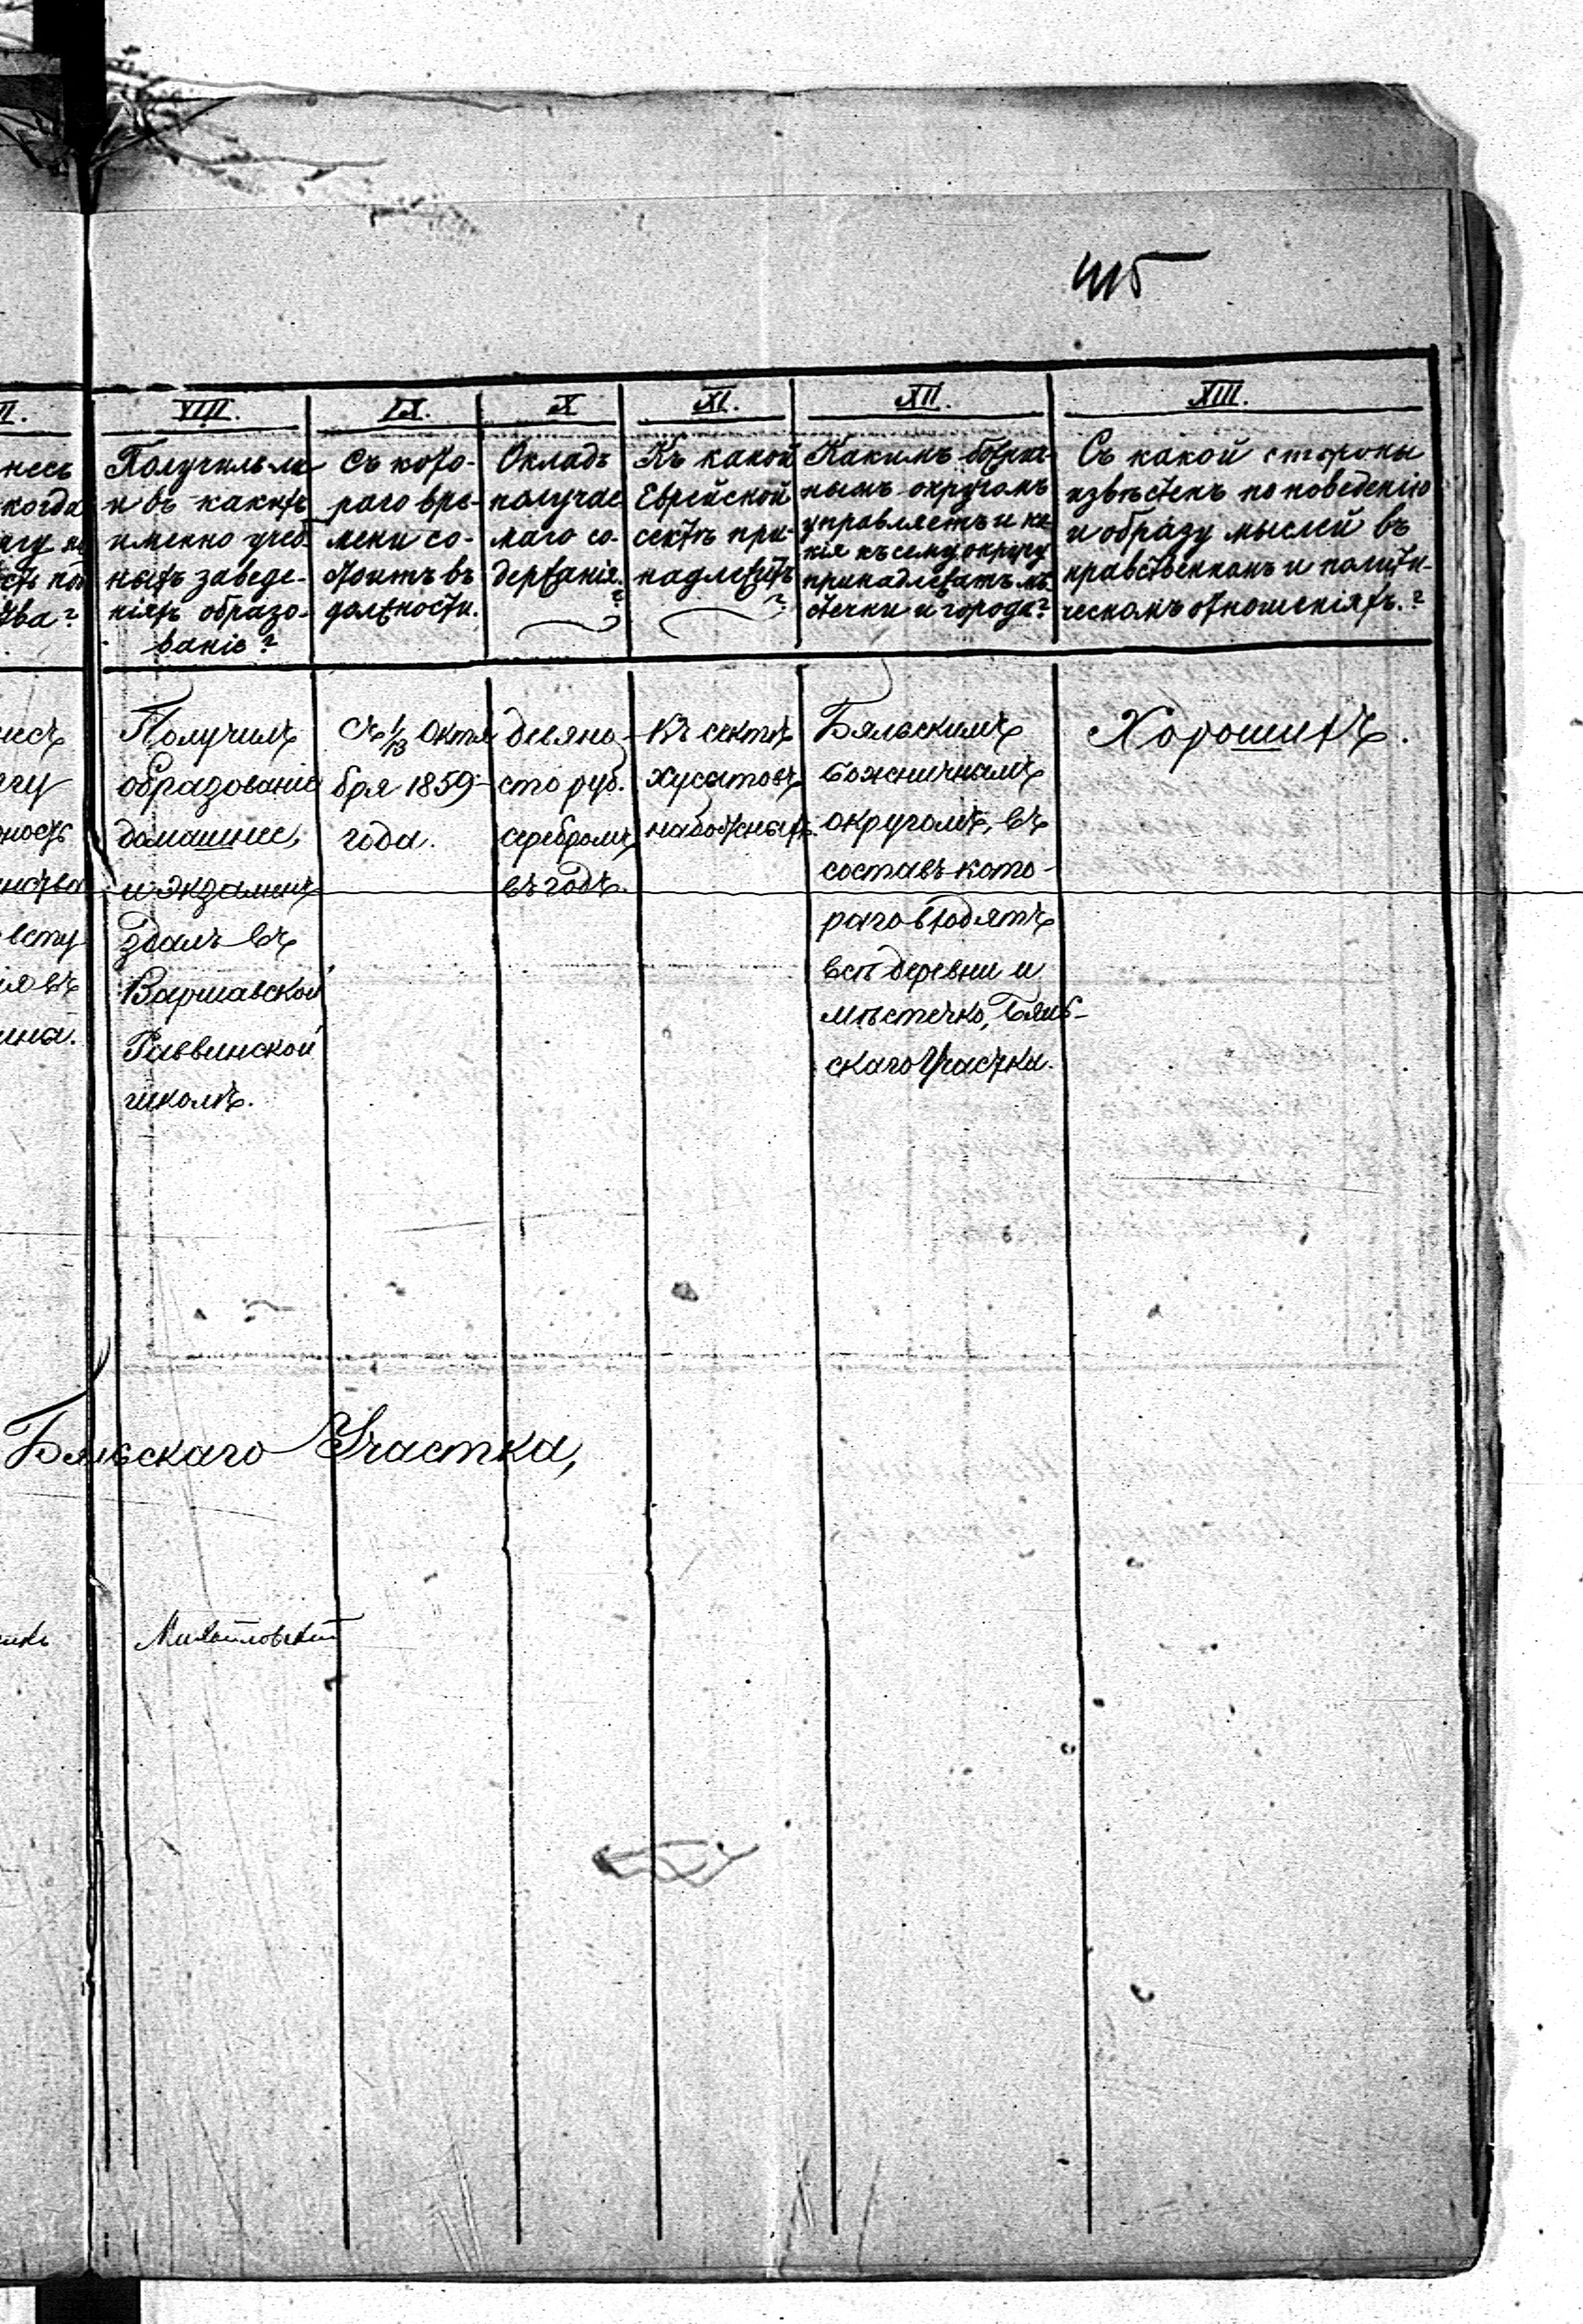 415
VIII.
Получилъ ли
и въ какихъ
именно учеб-
ныхъ заведе-
нiяхъ образо-
ванiе?
IX.
Съ кото-
раго вре-
мени со-
стоитъ въ
должности.
X
Окладъ
получае
маго со-
держанiя.?
XI.
Къ какой
Еврейской
сектѣ при-
надлежитъ?
XII.
Какимъ божни-
нымъ округомъ
управляетъ и ка-
кiя къ сему округу
принадлежатъ мѣ
стечки и города?
XIII.
Съ какой стороны
извѣстенъ по поведенiю
и образу мыслей въ
нравственномъ и полити-
ческомъ отношенiяхъ.?
Получилъ
образованiе
домашнее,
и экзаменъ
здалъ въ
Варшавской
Раввинской
школѣ.
Съ 1/13 Октя
бря 1859-
года.
девяно-
сто руб.
серебромъ
въ годъ.
Къ сектѣ
хусытовъ
набожныхъ.
Бяльскимъ
божничнымъ
округомъ, въ
составъ кото-
раго входятъ
всѣ деревни и
мѣстечко, Бяль-
скаго Участка.
Хорошихъ.
Бяльскаго Участка,
Михайловскiй